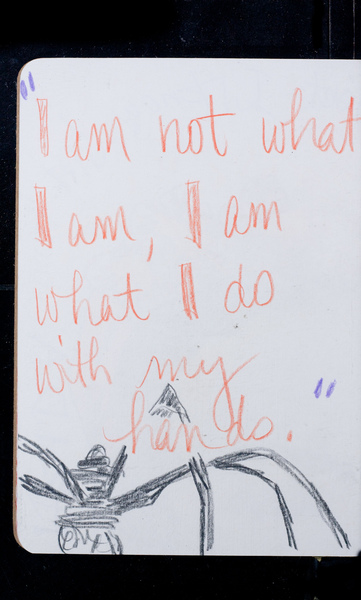 "I am not what
I am, I am
what I do
with my
hands."